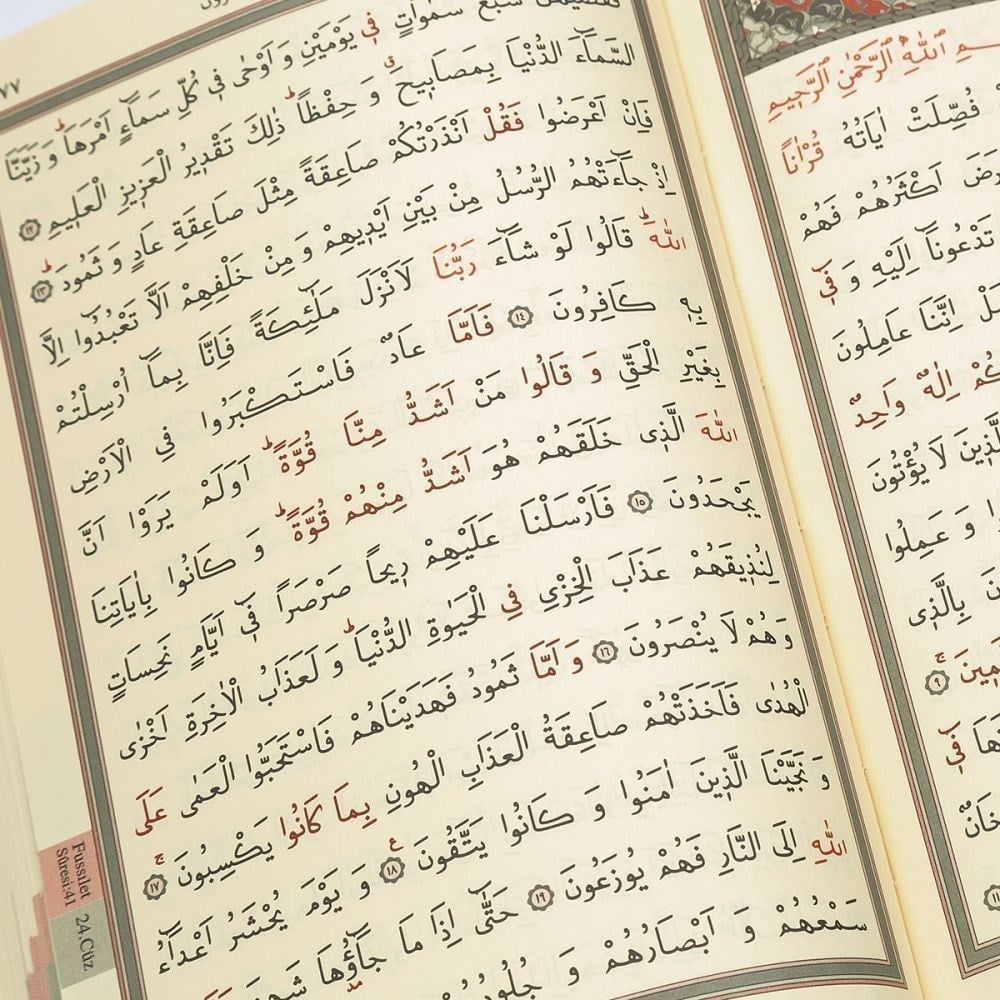 اللّٰهِ الرَّحْمٰنِ الرَّحٖيمِ
فُصِّلَتْ اٰيَاتُهُ قُرْاٰناً
اَكْثَرُهُمْ فَهُمْ
تَدْعُونَٓا اِلَيْهِ وَ فٖٓى
اِنَّنَا عَامِلُونَ
اِلٰهٌ وَاحِدٌ
لَا يُؤْتُونَ
وَ عَمِلُوا
بِالَّذٖى
٩
فٖٓى
٧٧
سَبْعَ سَمٰوَاتٍ فٖى يَوْمَيْنِ وَ اَوْحٰى فٖى كُلِّ سَمَٓاءٍ اَمْرَهَاؕ وَ زَيَّنَّا
السَّمَٓاءَ الدُّنْيَا بِمَصَابٖيحَۗ وَ حِفْظاًؕ ذٰلِكَ تَقْدٖيرُ الْعَزٖيزِ الْعَلٖيمِ ١٢
فَاِنْ اَعْرَضُوا فَقُلْ اَنْذَرْتُكُمْ صَاعِقَةً مِثْلَ صَاعِقَةِ عَادٍ وَ ثَمُودَؕ ١٣
اِذْ جَٓاءَتْهُمُ الرُّسُلُ مِنْ بَيْنِ اَيْدٖيهِمْ وَ مِنْ خَلْفِهِمْ اَلَّا تَعْبُدُٓوا اِلَّا
اللّٰهَؕ قَالُوا لَوْ شَٓاءَ رَبُّنَا لَاَنْزَلَ مَلٰٓئِكَةً فَاِنَّا بِمَٓا اُرْسِلْتُمْ
بِهٖ كَافِرُونَ ١٤ فَاَمَّا عَادٌ فَاسْتَكْبَرُوا فِى الْاَرْضِ
بِغَيْرِ الْحَقِّ وَ قَالُوا مَنْ اَشَدُّ مِنَّا قُوَّةًؕ اَوَلَمْ يَرَوْا اَنَّ
اللّٰهَ الَّذٖى خَلَقَهُمْ هُوَ اَشَدُّ مِنْهُمْ قُوَّةًؕ وَ كَانُوا بِاٰيَاتِنَا
يَجْحَدُونَ ١٥ فَاَرْسَلْنَا عَلَيْهِمْ رٖيحاً صَرْصَراً فٖٓى اَيَّامٍ نَحِسَاتٍ
لِنُذٖيقَهُمْ عَذَابَ الْخِزْىِ فِى الْحَيٰوةِ الدُّنْيَاؕ وَ لَعَذَابُ الْاٰخِرَةِ اَخْزٰى
وَ هُمْ لَا يُنْصَرُونَ ١٦ وَ اَمَّا ثَمُودُ فَهَدَيْنَاهُمْ فَاسْتَحَبُّوا الْعَمٰى عَلَى
الْهُدٰى فَاَخَذَتْهُمْ صَاعِقَةُ الْعَذَابِ الْهُونِ بِمَا كَانُوا يَكْسِبُونَۚ ١٧
وَ نَجَّيْنَا الَّذٖينَ اٰمَنُوا وَ كَانُوا يَتَّقُونَ ١٨ وَ يَوْمَ يُحْشَرُ اَعْدَٓاءُ
اللّٰهِ اِلَى النَّارِ فَهُمْ يُوزَعُونَ ١٩ حَتّٰٓى اِذَا مَا جَٓاؤُهَا
سَمْعُهُمْ وَ اَبْصَارُهُمْ وَ
Fussılet
Sûresi:41
24.Cüz